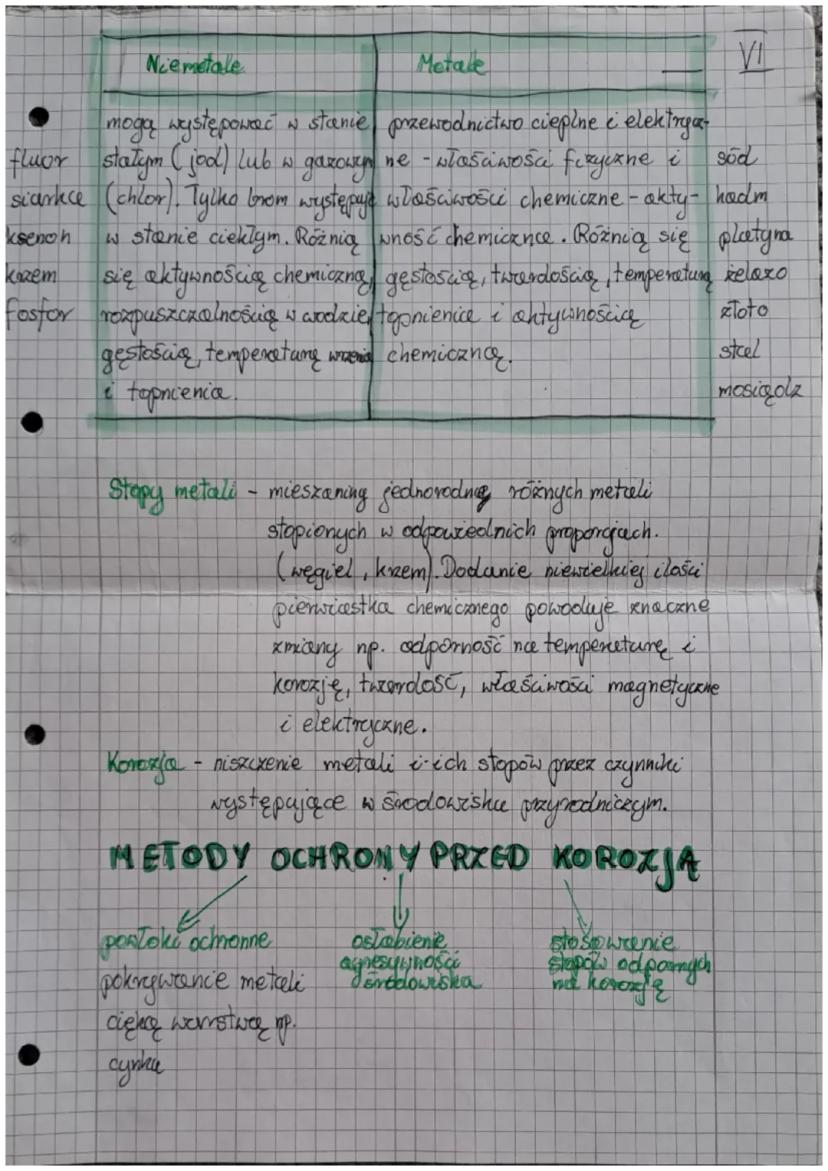 VI
Niemetale
Metale
mogą występować w stanie
stałym (jod) lub w gazowym
(chlor). Tylko brom występuje
w stanie ciekłym. Różnią
się aktywnością chemiczną,
rozpuszczalnością w wodzie,
gęstością, temperaturą wrzenia
i topnienia.
przewodnictwo cieplne i elektrycz-
ne - właściwości fizyczne i
właściwości chemiczne - akty-
wność chemiczna. Różnią się
gęstością, twardością, temperaturą
topnienia i aktywnością
chemiczną.
fluor
siarka
ksenon
krzem
fosfor
sód
kadm
platyna
żelazo
złoto
stal
mosiądz
Stopy metali - mieszaniny jednorodne różnych metali
stopionych w odpowiednich proporcjach.
(węgiel, krzem). Dodanie niewielkiej ilości
pierwiastka chemicznego powoduje znaczne
zmiany np. odporność na temperaturę i
korozję, twardość, właściwości magnetyczne
i elektryczne.
Korozja - niszczenie metali i ich stopów przez czynniki
występujące w środowisku przyrodniczym.
METODY OCHRONY PRZED KOROZJĄ
powłoki ochronne
pokrywanie metali
cięką warstwą np.
cynku
osłabienie
agresywności
środowiska
stosowanie
stopów odpornych
na korozję